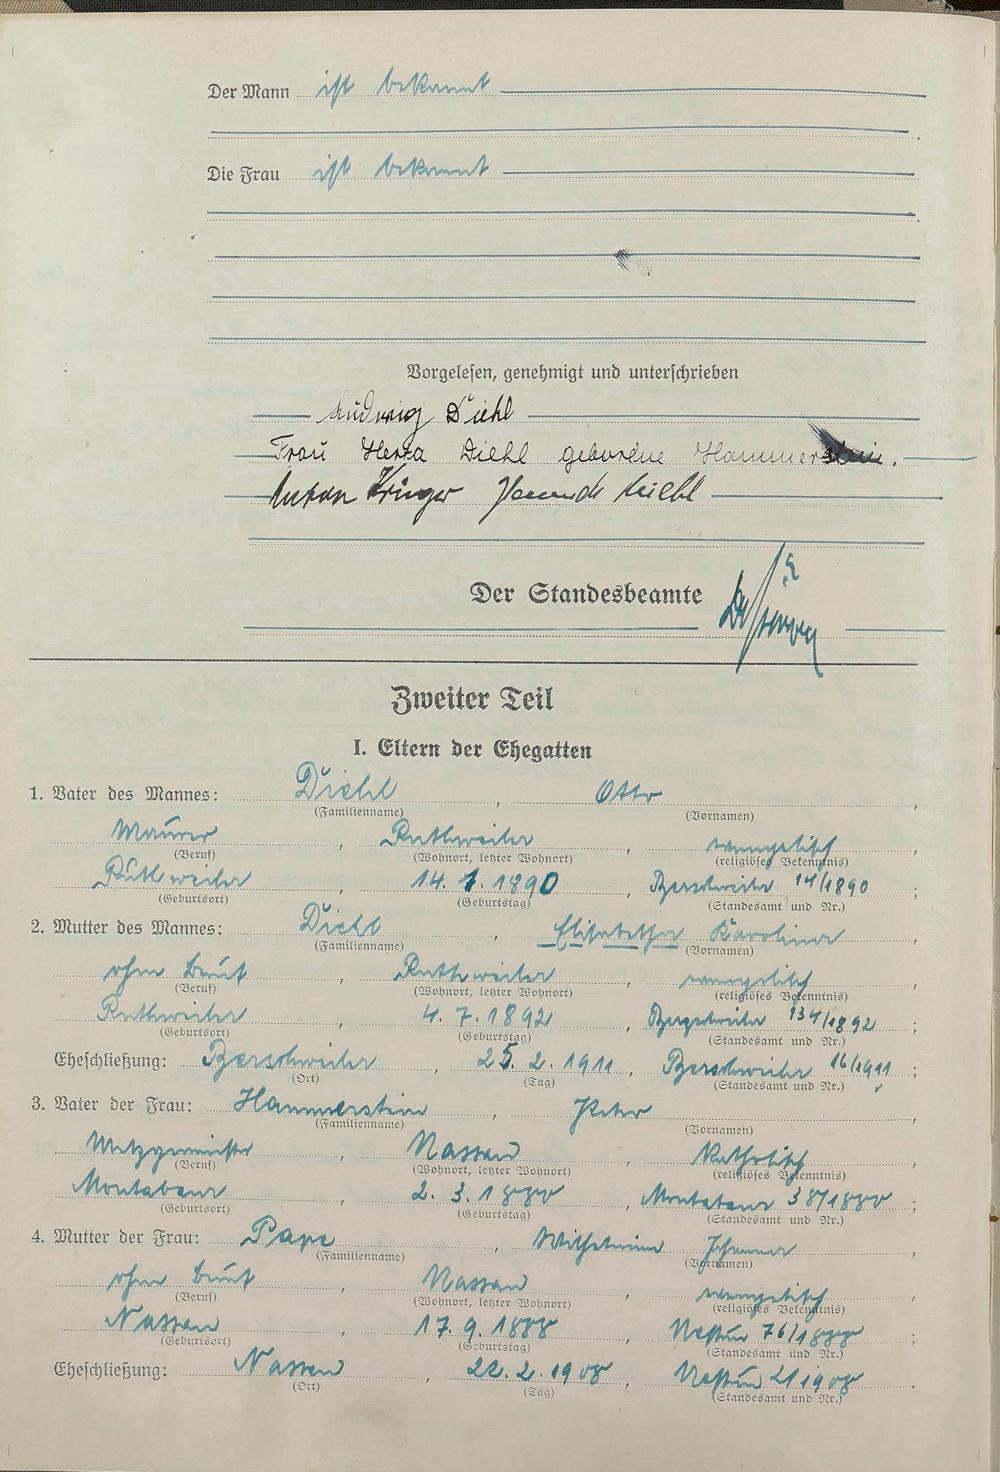 Der Mann ist bekannt
Die Frau ist bekannt
Vorgelesen, genehmigt und unterschrieben
Ludwig Diehl
Frau Herta Diehl geborene Hammerstein.
Anton Krieger Diehl
Der Standesbeamte
Zweiter Teil
I. Eltern der Ehegatten
1. Vater des Mannes: Diehl, Otto,
(Familienname) (Vornamen)
Maurer, Ruthweiler, evangelisch,
(Beruf) (Wohnort, letzter Wohnort) (religiöses Bekenntnis)
Ruthweiler, 14. 7. 1890, 14/1890;
(Geburtsort) (Geburtstag) (Standesamt und Nr.)
2. Mutter des Mannes: Diehl, Elisabetha Karolina,
(Familienname) (Vornamen)
ohne Beruf, Ruthweiler, evangelisch,
(Beruf) (Wohnort, letzter Wohnort) (religiöses Bekenntnis)
Ruthweiler, 4. 7. 1892, 134/1892;
(Geburtsort) (Geburtstag) (Standesamt und Nr.)
Eheschließung: Berschweiler, 25. 2. 1911, Berschweiler 16/1911;
(Ort) (Tag) (Standesamt und Nr.)
3. Vater der Frau: Hammerstein, Peter,
(Familienname) (Vornamen)
Metzgermeister, Nassau, katholisch,
(Beruf) (Wohnort, letzter Wohnort) (religiöses Bekenntnis)
Montabaur, 2. 3. 1880, Montabaur 38/1880;
(Geburtsort) (Geburtstag) (Standesamt und Nr.)
4. Mutter der Frau: Pape, Wilhelmine Johanna,
(Familienname) (Vornamen)
ohne Beruf, Nassau, evangelisch,
(Beruf) (Wohnort, letzter Wohnort) (religiöses Bekenntnis)
Nassau, 17. 9. 1888, 76/1888;
(Geburtsort) (Geburtstag) (Standesamt und Nr.)
Eheschließung: Nassau, 22. 2. 1908,
(Ort) (Tag) (Standesamt und Nr.)